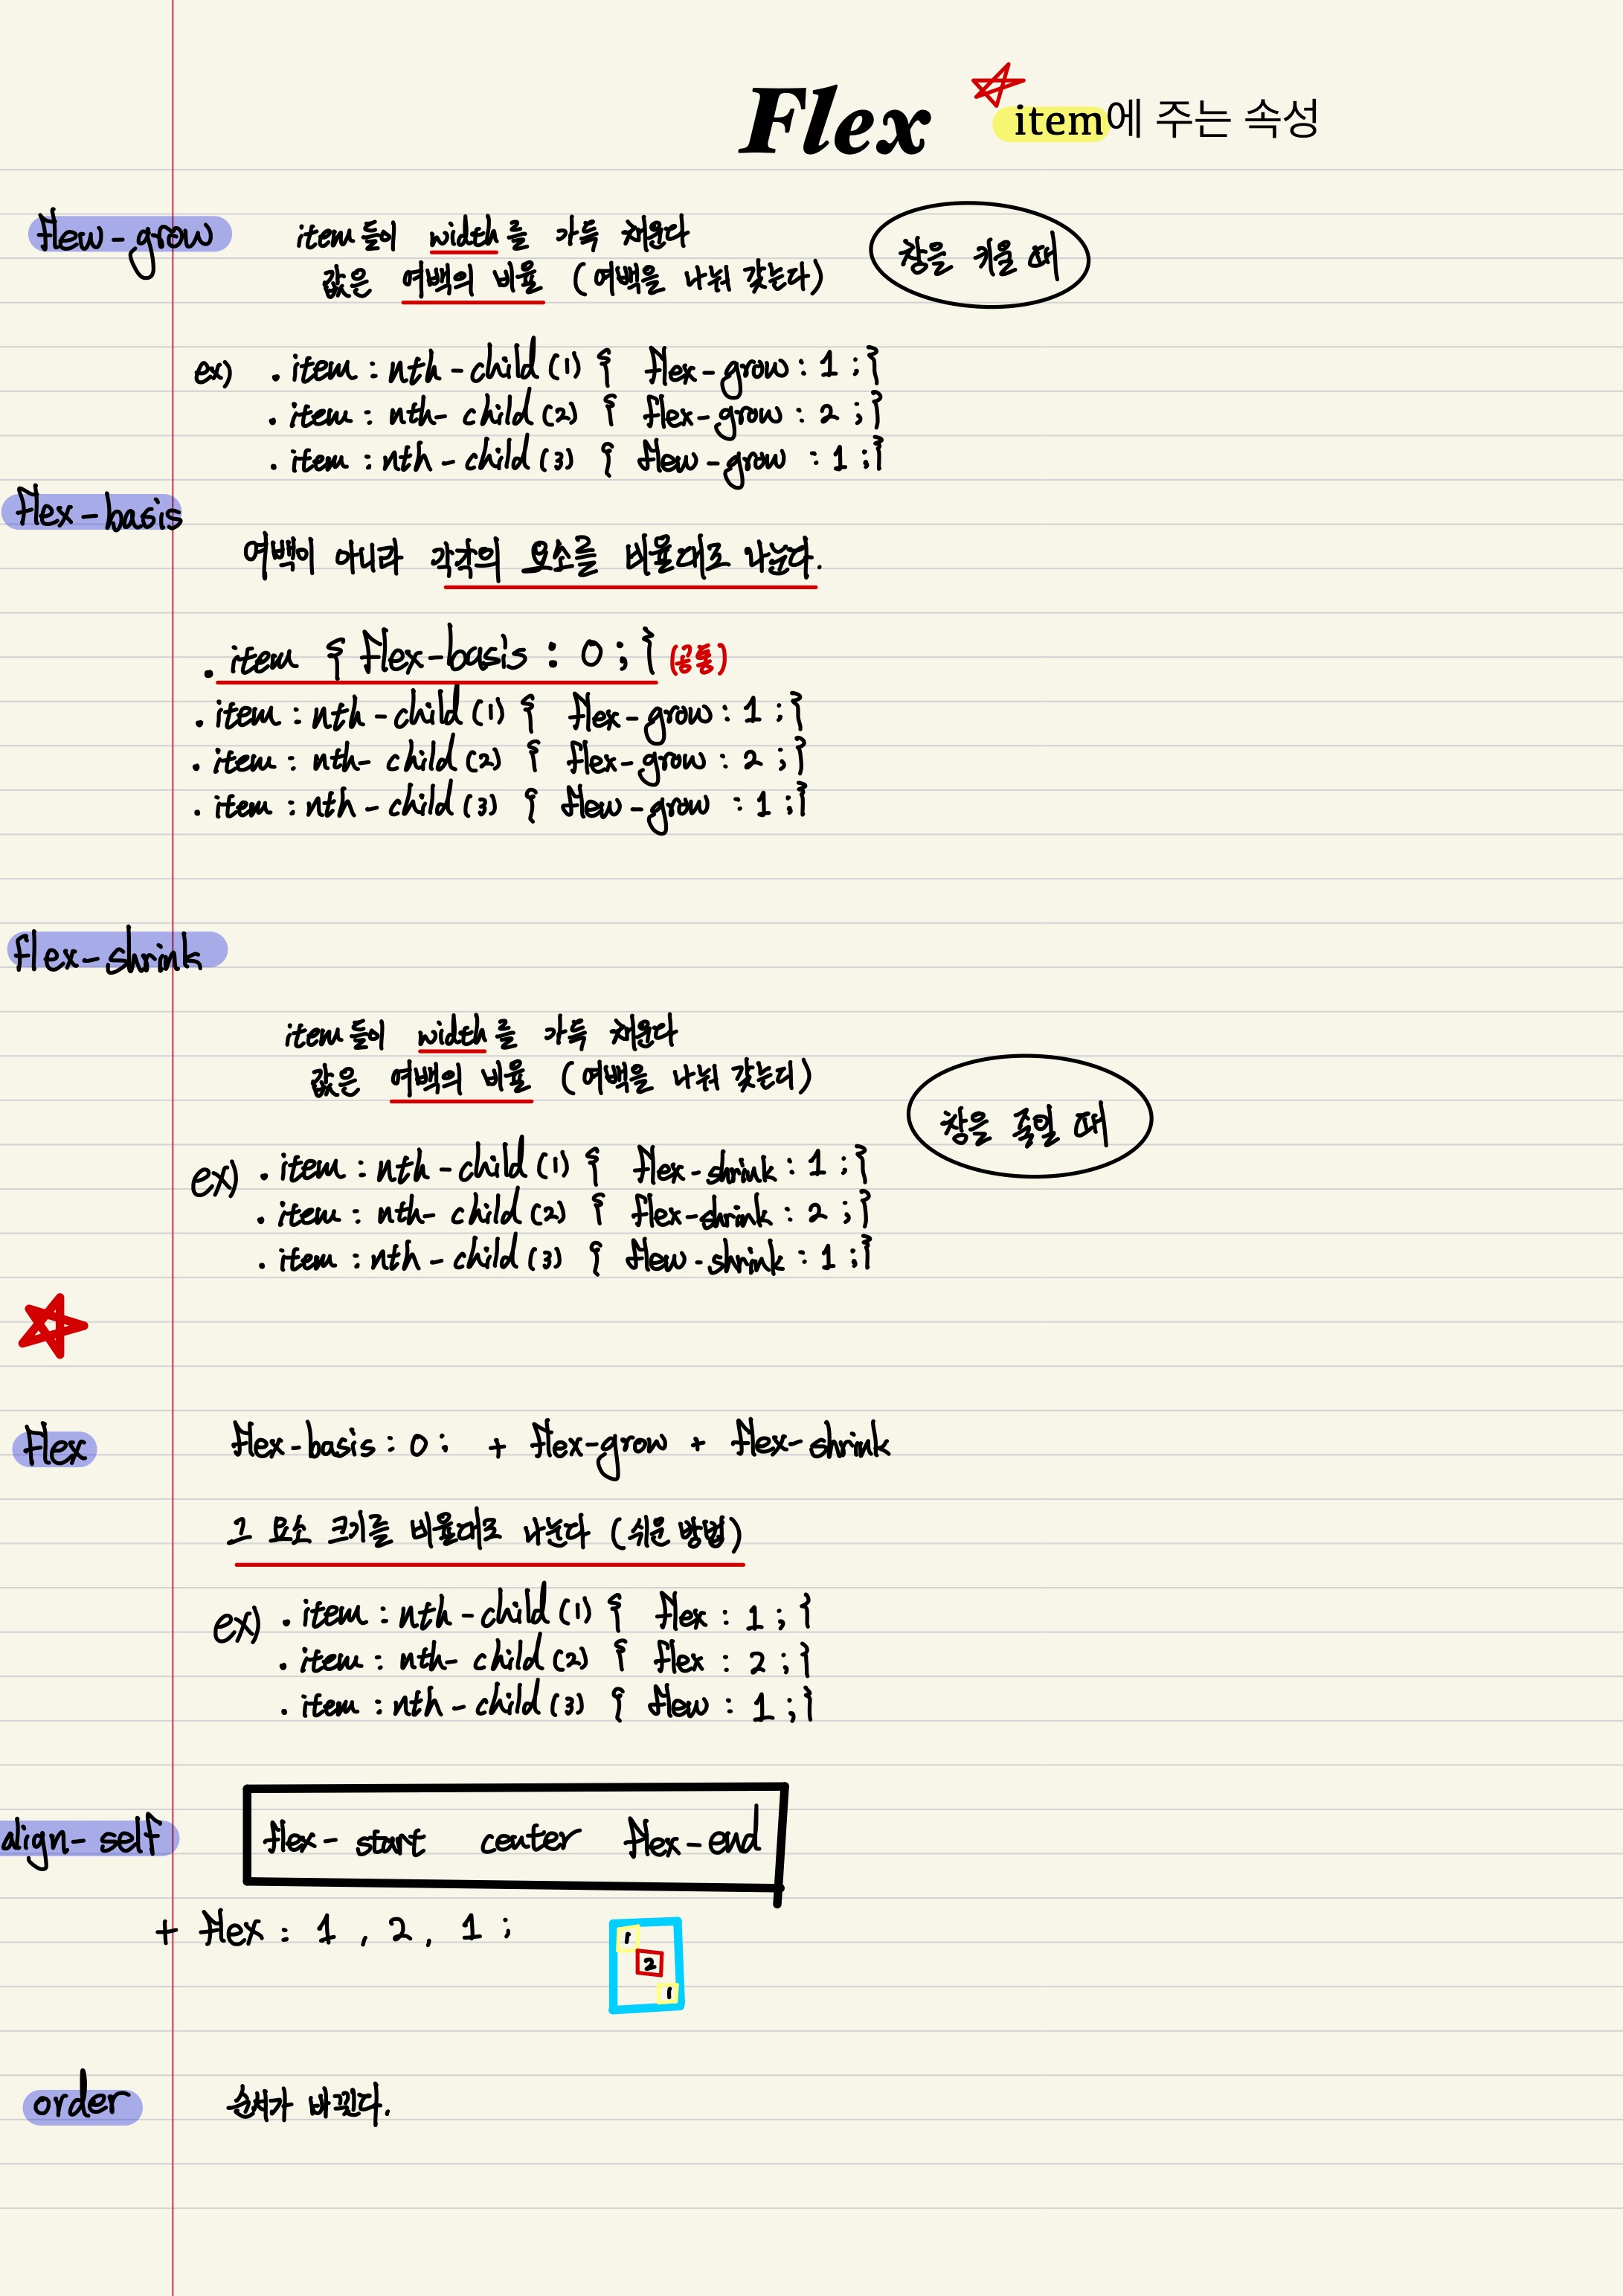 Flex item에 주는 속성
flew-grow item들이 width를 가득 채운다
값은 여백의 비율 (여백을 나눠 갖는다)
창을 키울 때
ex) .item : nth-child (1) { flex-grow : 1 ; }
.item : nth-child (2) { flex-grow : 2 ; }
.item : nth-child (3) { flew-grow : 1 ; }
flex-basis
여백이 아니라 각각의 요소를 비율대로 나눈다.
.item { flex-basis : 0 ; } (공통)
.item : nth-child (1) { flex-grow : 1 ; }
.item : nth-child (2) { flex-grow : 2 ; }
.item : nth-child (3) { flew-grow : 1 ; }
flex-shrink
item들이 width를 가득 채운다
값은 여백의 비율 (여백을 나눠 갖는다)
창을 줄일 때
ex) .item : nth-child (1) { flex-shrink : 1 ; }
.item : nth-child (2) { flex-shrink : 2 ; }
.item : nth-child (3) { flew-shrink : 1 ; }
flex flex-basis : 0 ; + flex-grow + flex-shrink
그 요소 크기를 비율대로 나눈다 (쉬운 방법)
ex) .item : nth-child (1) { flex : 1 ; }
.item : nth-child (2) { flex : 2 ; }
.item : nth-child (3) { flew : 1 ; }
align-self flex-start center flex-end
+ flex : 1 , 2 , 1 ;
1
2
1
order 순서가 바뀐다.